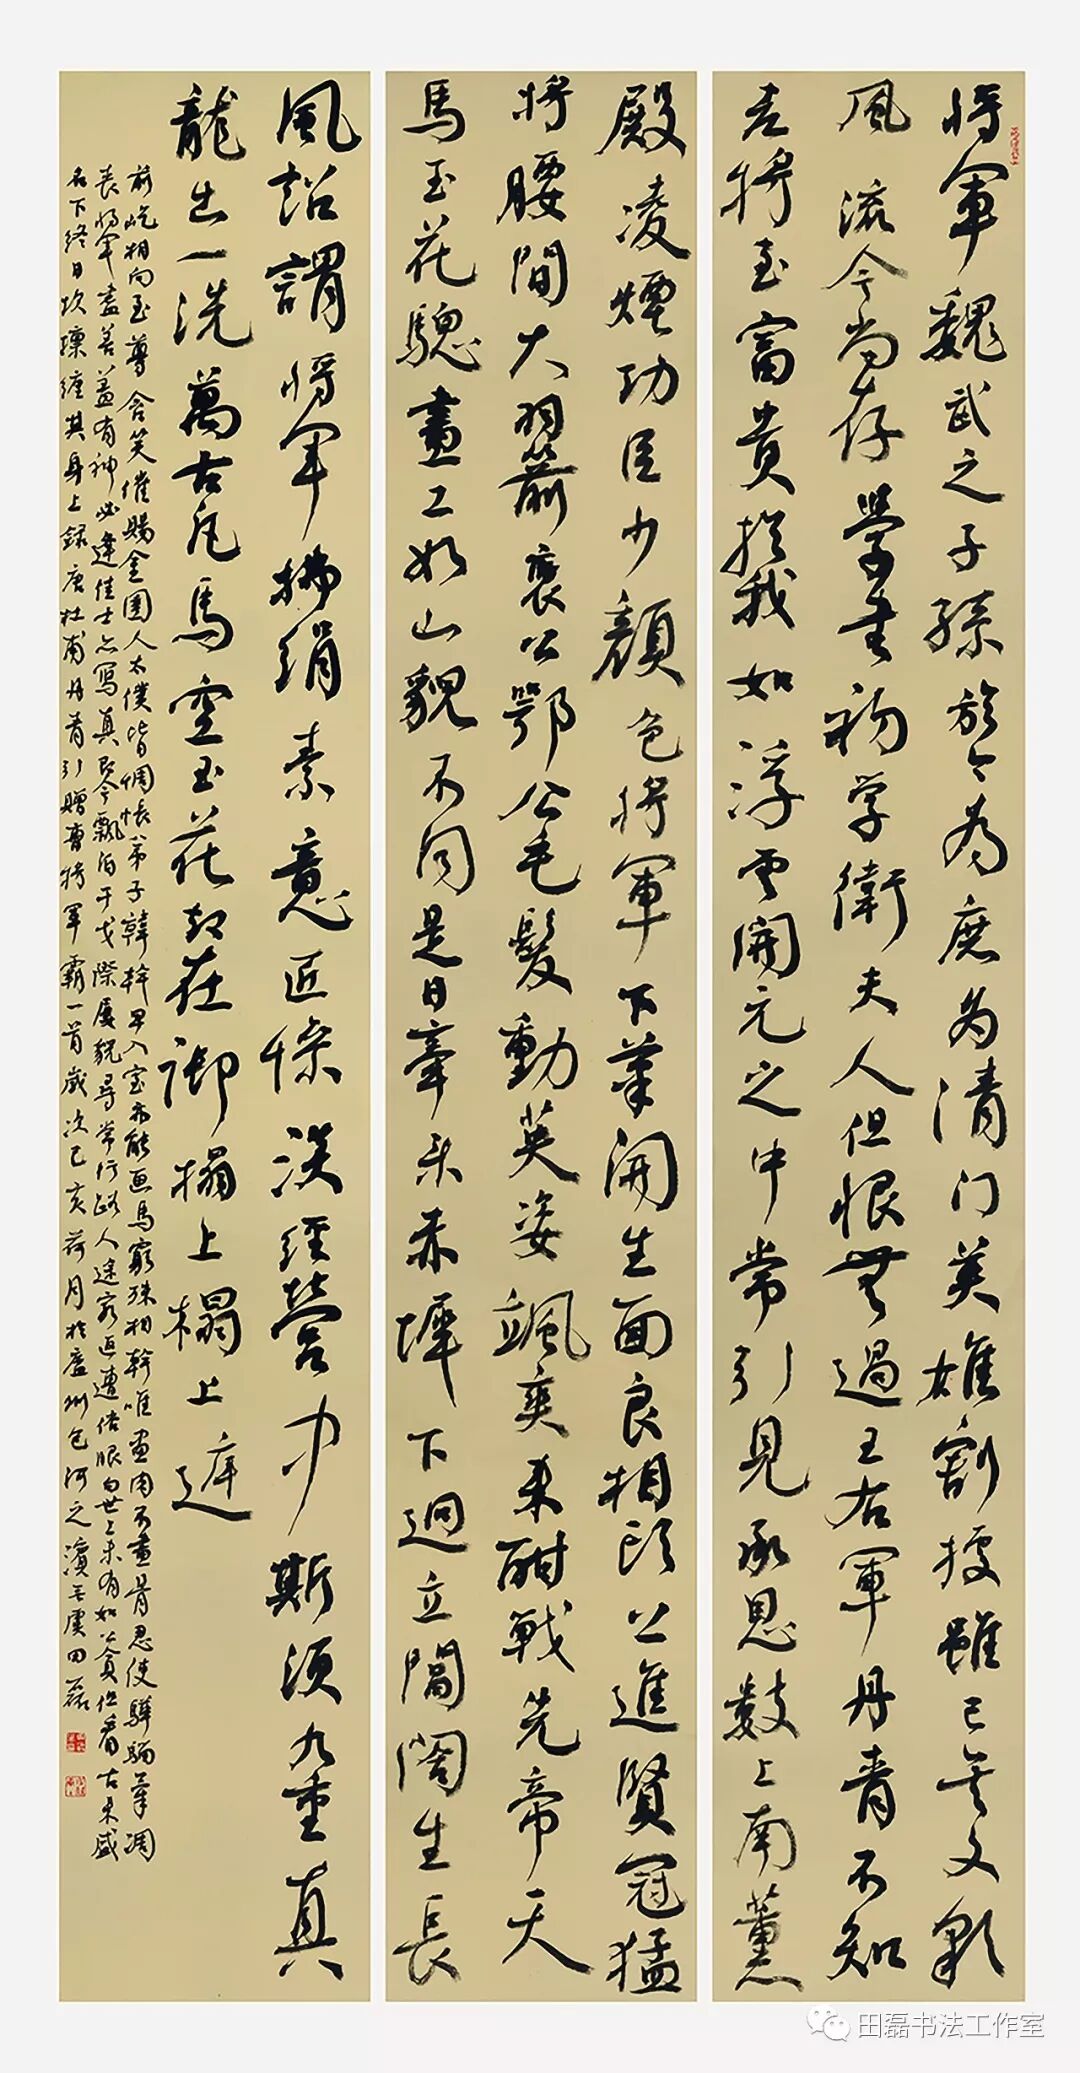 將軍魏武之子孫於今为庶为清门英雄割據雖已矣文彩
風流今尚存學書初学衛夫人但恨無過王右軍丹青不知
老將至富貴於我如浮雲開元之中常引見承恩數上南薰
殿凌煙功臣少顏色將軍下筆開生面良相頭上進賢冠猛
將腰間大羽箭褒公鄂公毛髮動英姿颯爽来酣戰先帝天
馬玉花驄畫工如山貌不同是日牽来赤墀下迥立閶闔生長
風詔謂將军拂絹素意匠慘淡經營中斯須九重真
龍出一洗萬古凡馬空玉花却在御榻上榻上庭
前屹相向至尊含笑催賜金圉人太僕皆惆悵弟子韓幹早入室亦能画馬窮殊相幹唯畫肉不畫骨忍使驊騮氣凋
喪將军盡善蓋有神必逢佳士亦寫真即今飄泊干戈際屢貌尋常行路人途窮返遭俗眼白世上未有如公貧但看古来盛
名下終日坎壈纏其身上錄唐杜甫丹青引贈曹將軍霸一首歲次己亥荷月於廬州包河之濱虞田磊
田磊书法工作室